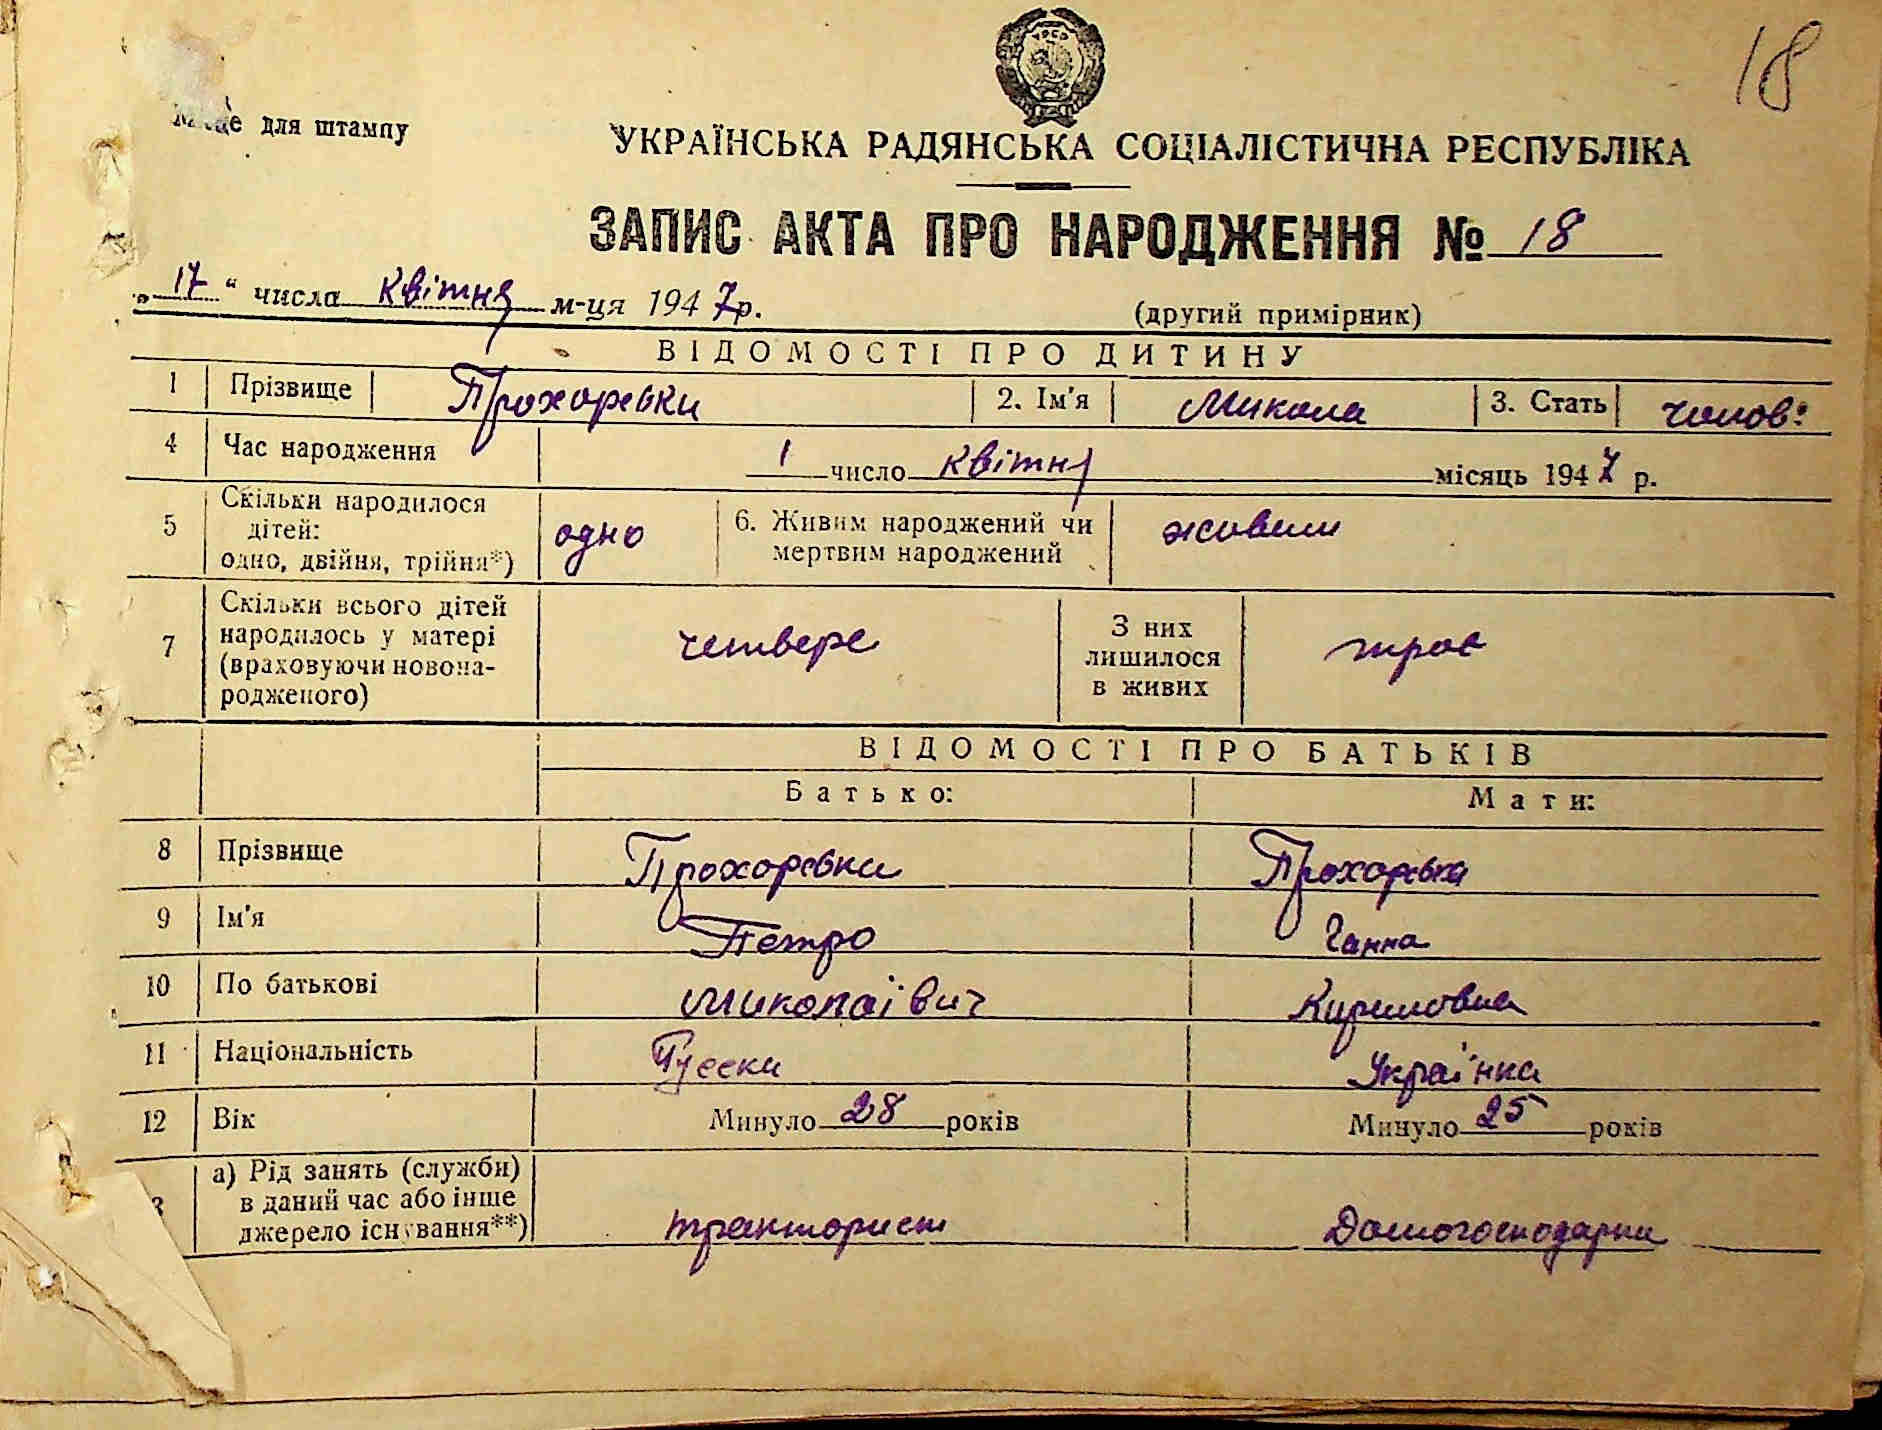 18
Місце для штампу
УРСР
УКРАЇНСЬКА РАДЯНСЬКА СОЦІАЛІСТИЧНА РЕСПУБЛІКА
ЗАПИС АКТА ПРО НАРОДЖЕННЯ № 18
„17“ числа квітня м-ця 1947 р.
(другий примірник)
ВІДОМОСТІ ПРО ДИТИНУ
1 Прізвище Прохоревки 2. Ім'я Микола 3. Стать чолов:
4 Час народження 1 число квітня місяць 1947 р.
5 Скільки народилося дітей: одно, двійня, трійня*) одно 6. Живим народжений чи мертвим народжений живим
7 Скільки всього дітей народилось у матері (враховуючи новонародженого) четвере З них лишилося в живих троє
ВІДОМОСТІ ПРО БАТЬКІВ
Батько: Мати:
8 Прізвище Прохоревки Прохоревка
9 Ім'я Петро Ганна
10 По батькові Миколаївич Кириловна
11 Національність Русски Українка
12 Вік Минуло 28 років Минуло 25 років
3 а) Рід занять (служби) в даний час або інше джерело існування**) тракторист Домогосподарка